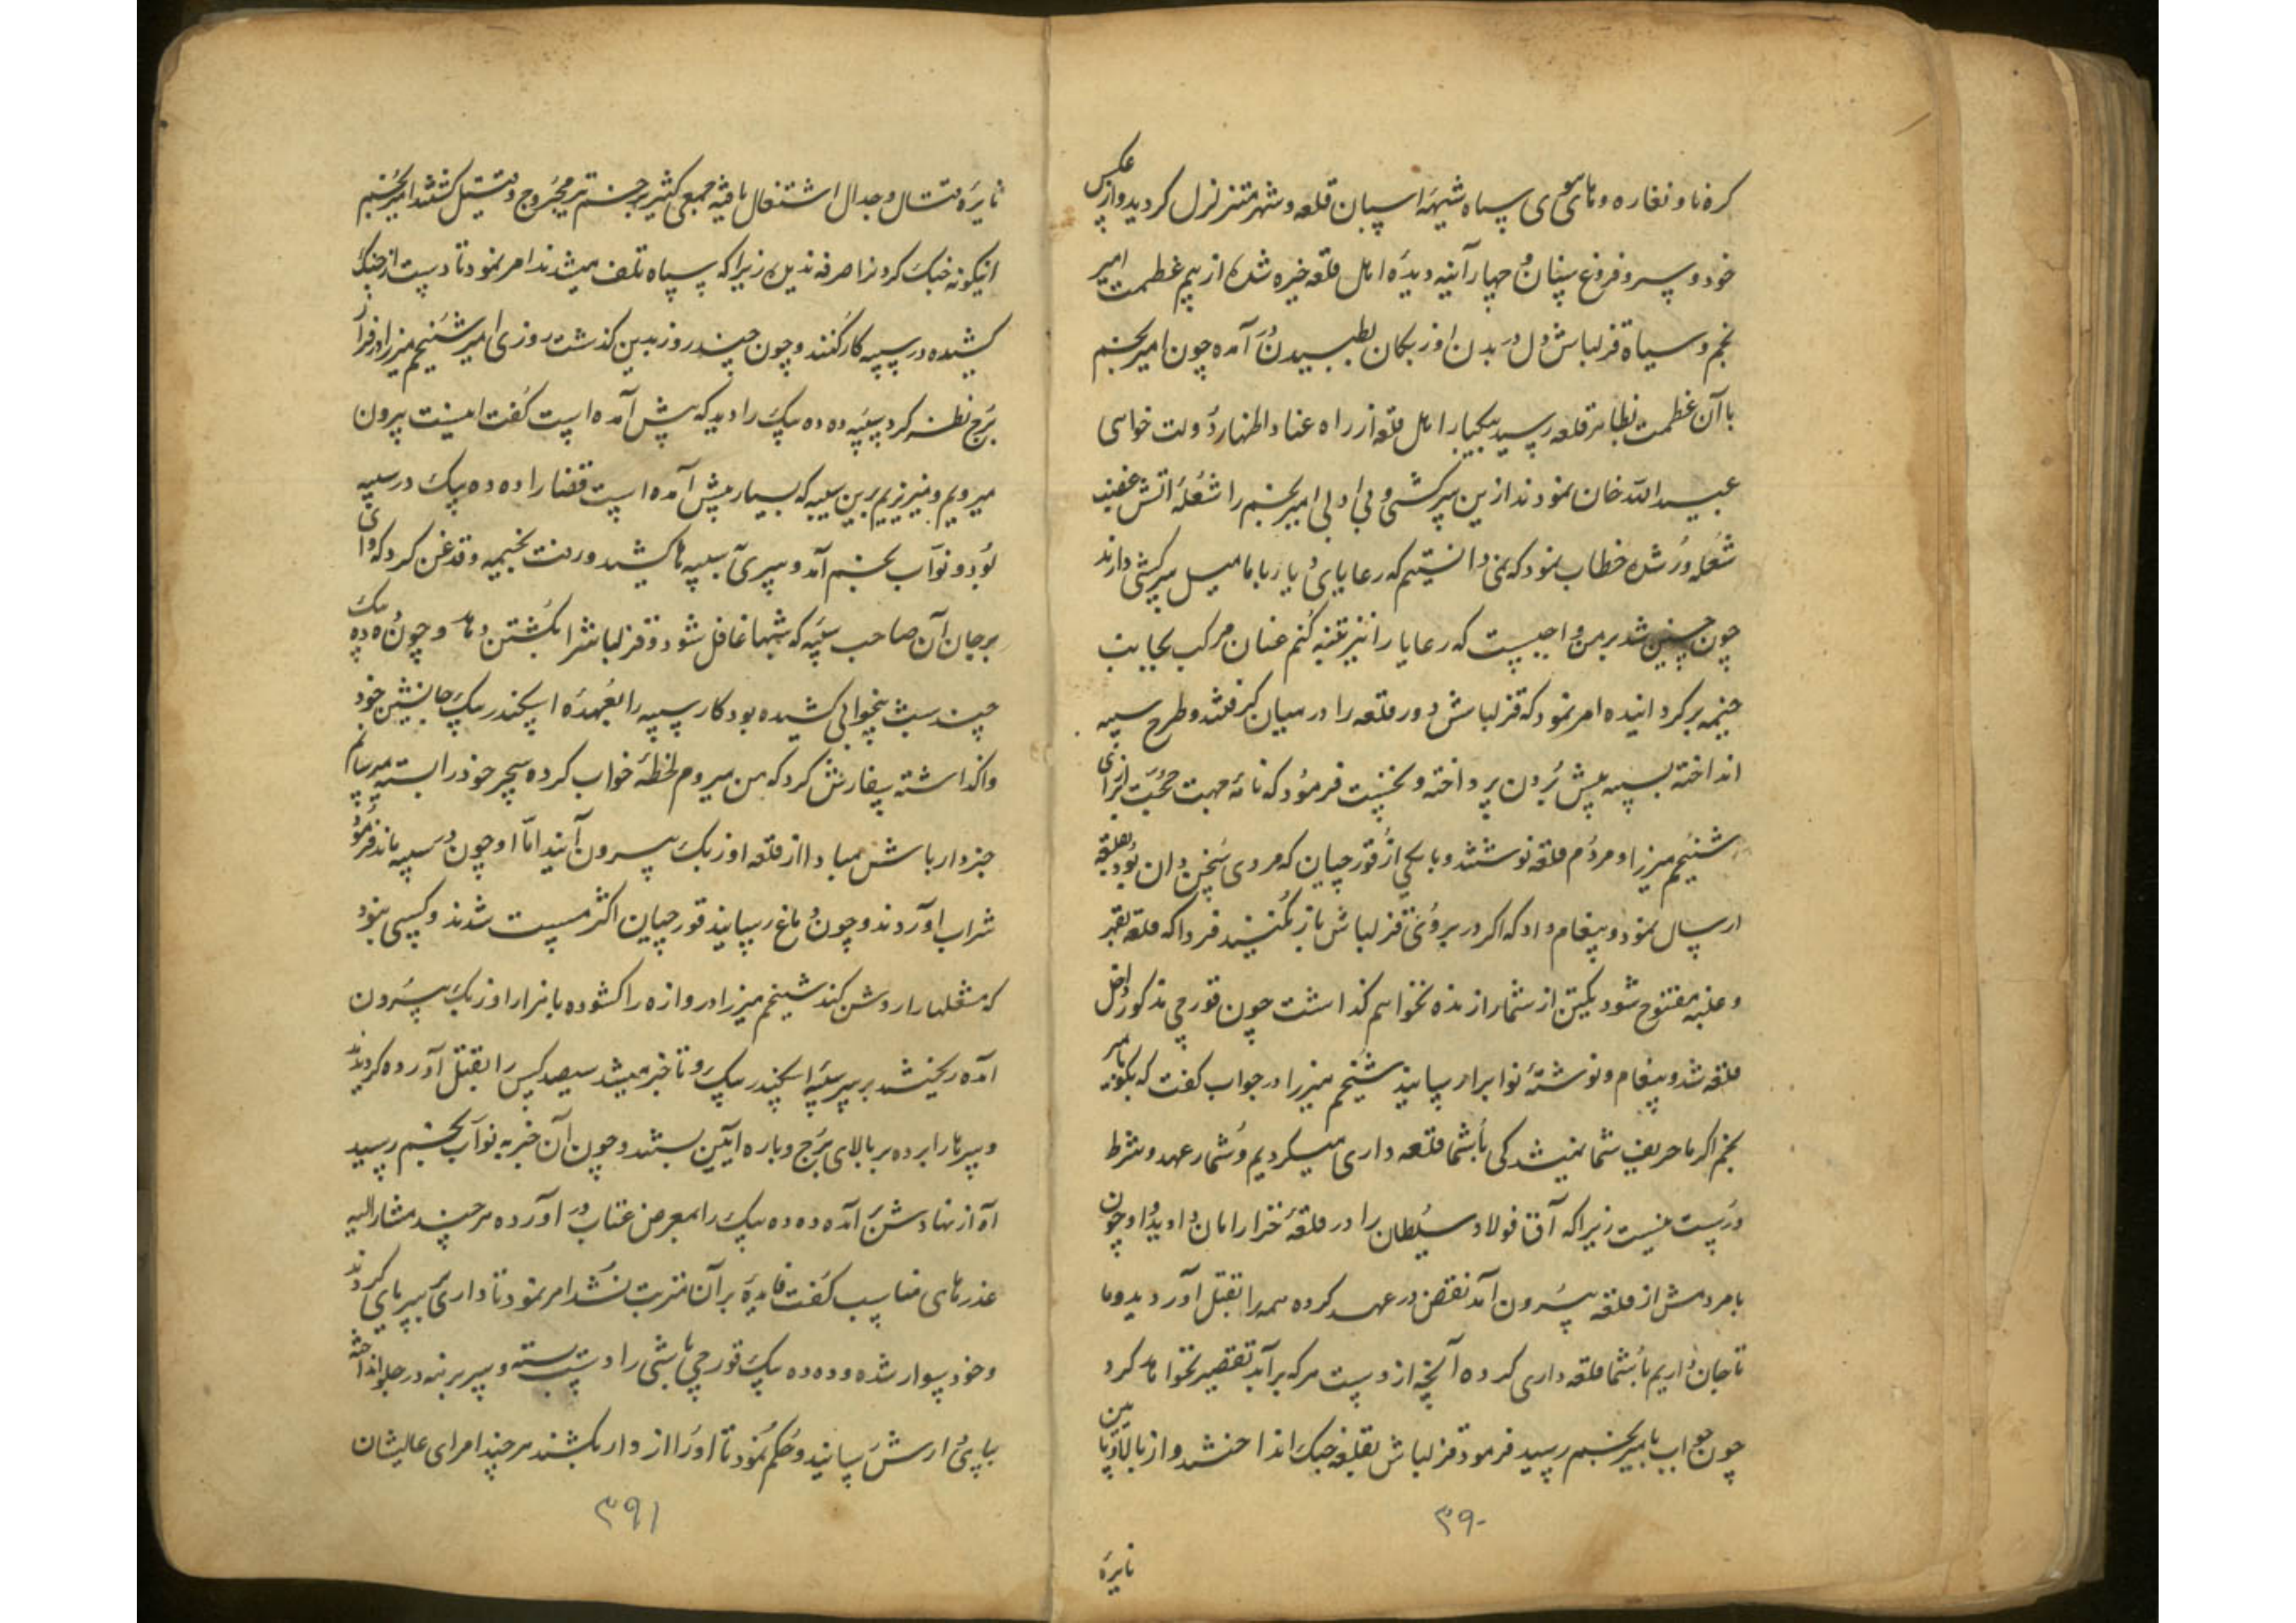 کره نا و نغاره و های هوی سپاه شیهه اسپان قلعه و شهر متزلزل کردید و از عکس
خود و سپر و فروغ سنان و چهار آینه دیده اهل قلعه خیره شده از بیم عظمت امیر
نجم و سپاه قزلباش دل در بدن اوزبکان بطپیدن آمده چون امیر نجم
با آن عظمت بظاهر قلعه رسید بیکبار اهل قلعه از راه عناد اظهار دولت خواهی
عبید الله خان نمودند ازین سرکشی و بی ادبی امیر نجم را شعله آتش غضب
شعله ور شده خطاب نمود که نمی دانستیم که رعایای دیار با ما میل سرکشی دارند
چون چنین شد بر من واجبست که رعایا را نیز تنبیه کنم عنان مرکب بجانب
خیمه بر کردانیده امر نمود که قزلباش دور قلعه را در میان کرفتند و طرح سیبه
انداخته بسیبه پیش بردن پرداخته و نخست فرمود که نامه جهت حجت از برای
شیخم میرزا و مردم قلعه نوشتند و با یکی از قورچیان که مردی سخن دان بود بقلعه
ارسال نمود و پیغام داد که اکر در بروی قزلباش باز نکنید فردا که قلعه بقهر
و غلبه مفتوح شود یکتن از شما را زنده نخواهم کذاشت چون قورچی مذکور داخل
قلعه شد و پیغام و نوشته نواب را رسانید شیخم میرزا در جواب کفت که بکو بامیر
نجم اکر ما حریف شما نمیشدیم کی با شما قلعه داری میکردیم و شما را عهد و شرط
درست نیست زیرا که آق فولاد سلطان را در قلعه خزار امان دادید و او چون
با مردمش از قلعه بیرون آمد نقض در عهد کرده همه را بقتل آوردید و ما
تا جان داریم با شما قلعه داری کرده آنچه از دست هر که بر آید تقصیر نخواهد کرد
چون جواب بامیر نجم رسید فرمود قزلباش بقلعه جنک انداختند و از بالا و پایین
نایره
۳۹۰
نایره قتال و جدال اشتغال یافته جمعی کثیر بزخم تیر مجروح و قتیل کشتند امیر نجم
اینکونه جنک کردن را صرفه ندید زیرا که سپاه تلف میشدند امر نمود تا دست از جنک
کشیده در سیبه کار کنند و چون چند روز بدین کذشت روزی امیر شیخم میرزا از فراز
برج نظر کرد سیبه ده ده بیک را دید که پیش آمده است کفت امشب بیرون
میرویم و میریزیم برین سیبه که بسیار پیش آمده است قضا را ده ده بیک در سیبه
بود و نواب نجم آمد و سری بسیبه ها کشید و رفت بخیمه و قدغن کرد که وای
بر جان آن صاحب سیبه که شبها غافل شود و قزلباش را بکشتن دهد و چون ده ده بیک
چند شب بیخوابی کشیده بود کار سیبه را بعهده اسکندر بیک جانشین خود
واکذاشته سفارش کرد که من میروم لحظه خواب کرده سحر خود را بسیبه میرسانم
خبردار باش مبادا از قلعه اوزبک بیرون آیند اما او چون در سیبه ماند فرمود
شراب آوردند و چون دماغ رسانید قورچیان اکثر مست شدند و کسی نبود
که مشعلها را روشن کند شیخم میرزا دروازه را کشوده با هزار اوزبک بیرون
آمده ریختند بر سر سیبه اسکندر بیک و تا خبر میشد سیصد کس را بقتل آورده کردیدند
و سرها را برده بر بالای برج و باره آیین بستند و چون آن خبر به نواب نجم رسید
آه از نهادش بر آمده ده ده بیک را بمعرض عتاب در آورده هر چند مشار الیه
عذرهای مناسب کفت فایده بر آن مترتب نشد امر نمود تا داری بر پای کردند
و خود سوار شده و ده ده بیک قورچی باشی را دست بسته و سر برهنه در جلو انداخته
بپای دارش رسانید و حکم نمود تا او را از دار بکشند هر چند امرای عالیشان
۳۹۱